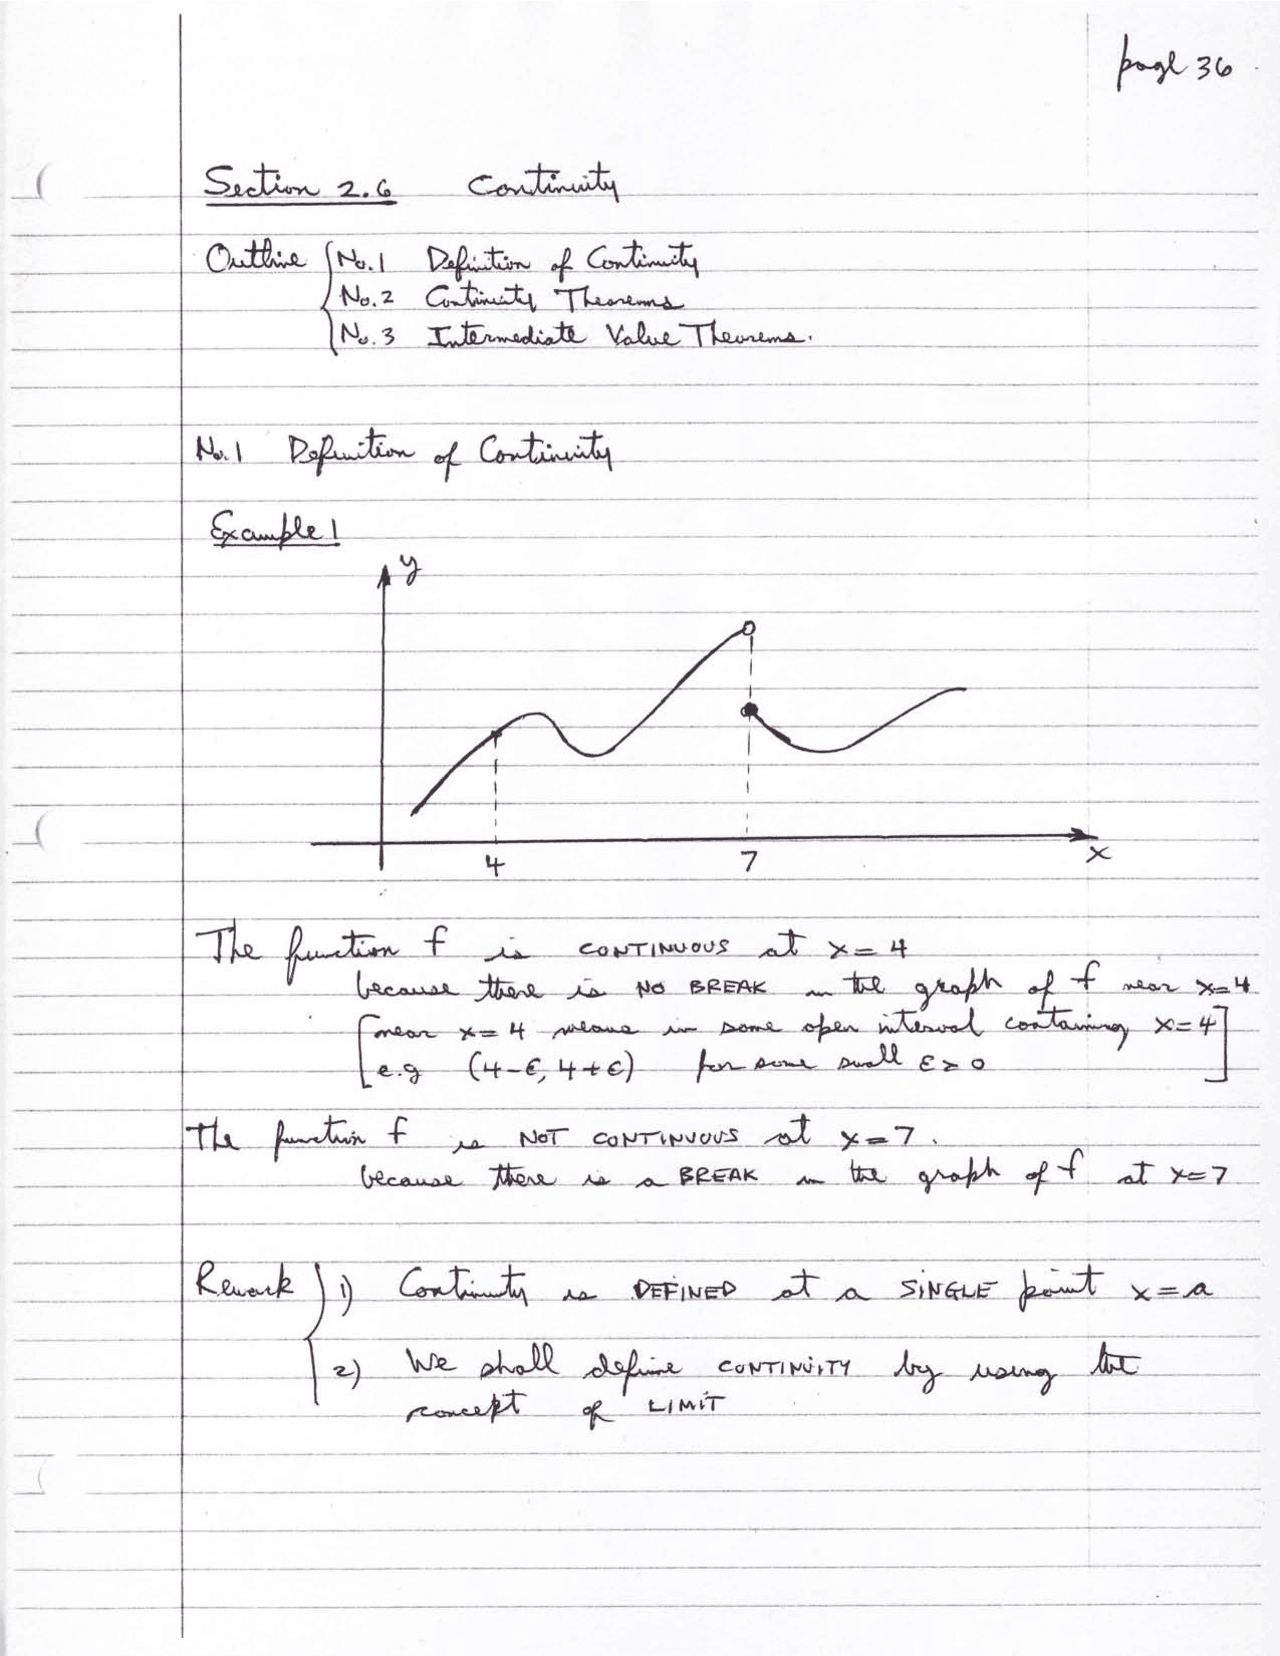 page 36
Section 2.6 Continuity
Outline No.1 Definition of Continuity
No.2 Continuity Theorems
No.3 Intermediate Value Theorems.
No.1 Definition of Continuity
Example 1
y
4 7 x
The function f is CONTINUOUS at x=4
because there is NO BREAK in the graph of f near x=4
[near x=4 means in some open interval containing x=4]
e.g (4-ε, 4+ε) for some small ε>0
The function f is NOT CONTINUOUS at x=7.
because there is a BREAK in the graph of f at x=7
Remark 1) Continuity is DEFINED at a SINGLE point x=a
2) We shall define CONTINUITY by using the
concept of LIMIT